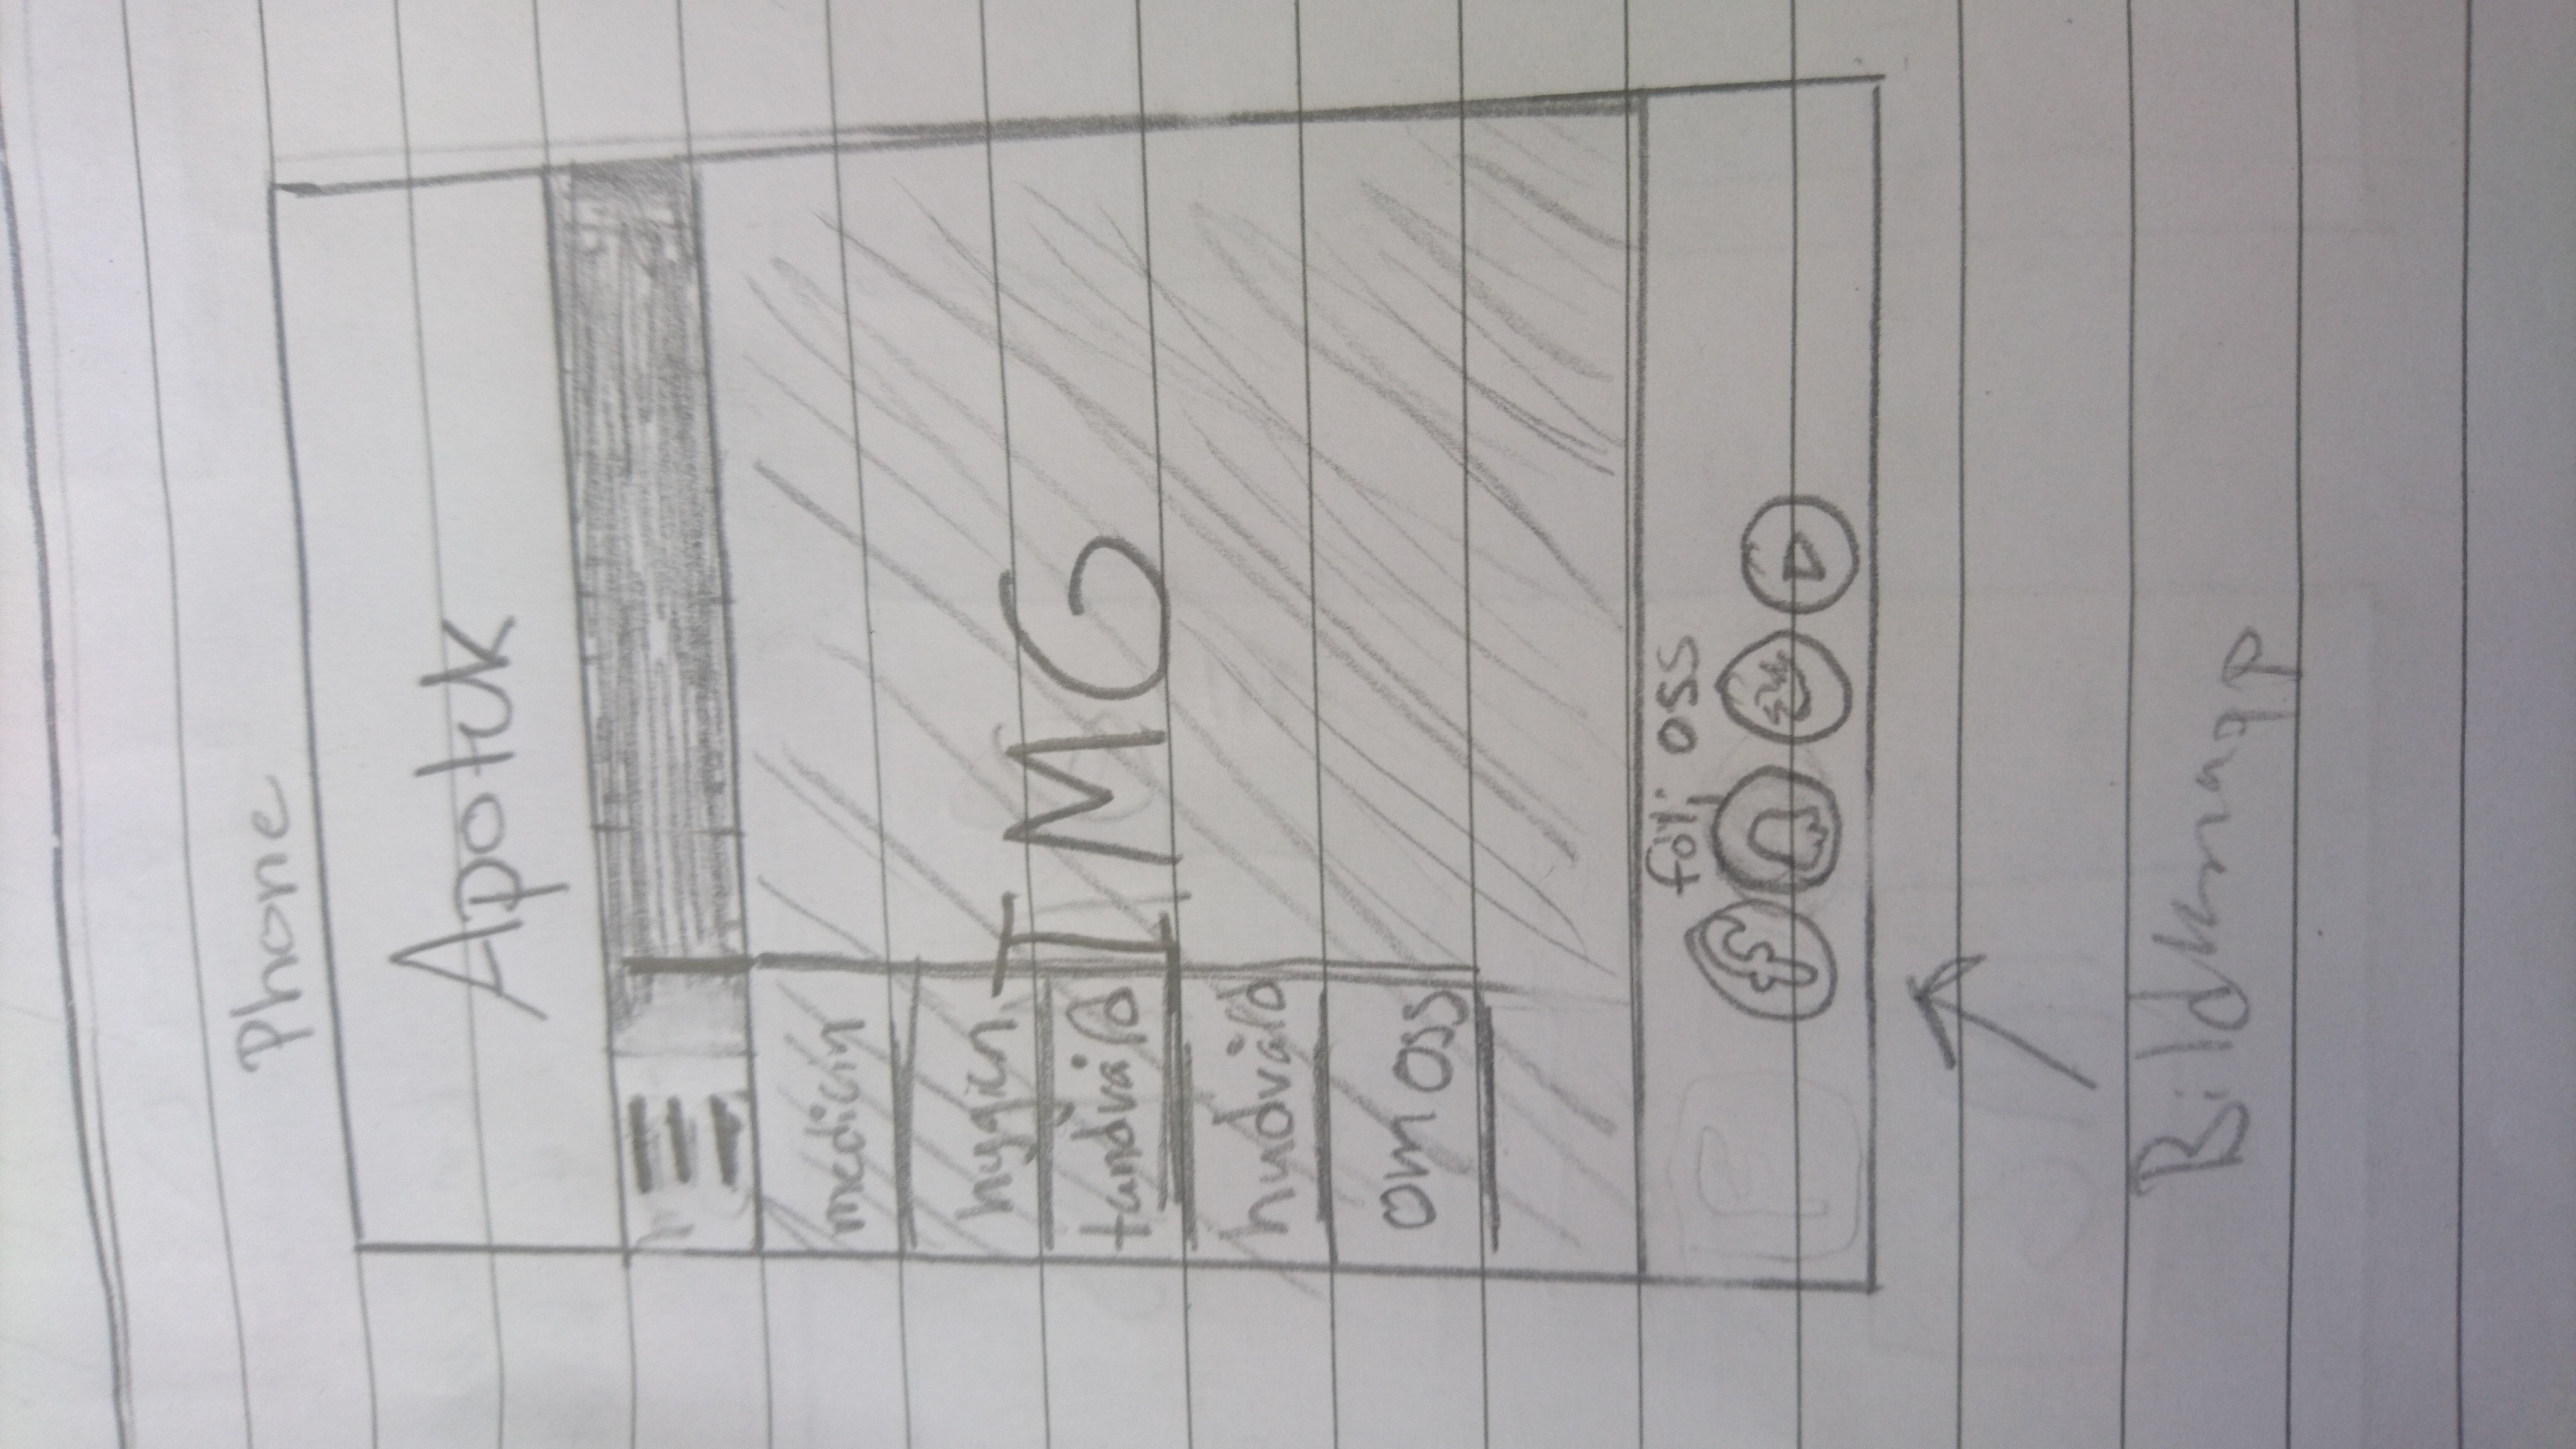 Phone
Apotek
medicin
hygien
IMG
tandvåld
hudvåld
om oss
följ oss
f
Bildknapp